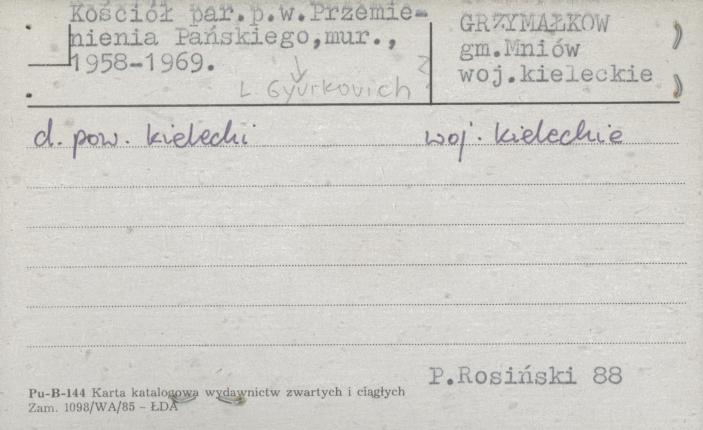 Kościół par.p.w.Przemie-
nienia Pańskiego,mur.,
1958-1969.
L. Gyurkovich
GRZYMAŁKOW
gm.Mniów
woj.kieleckie
d. pow. kielecki woj. kieleckie
P.Rosiński 88
Pu-B-144 Karta katalogowa wydawnictw zwartych i ciągłych
Zam. 1098/WA/85 - ŁDA